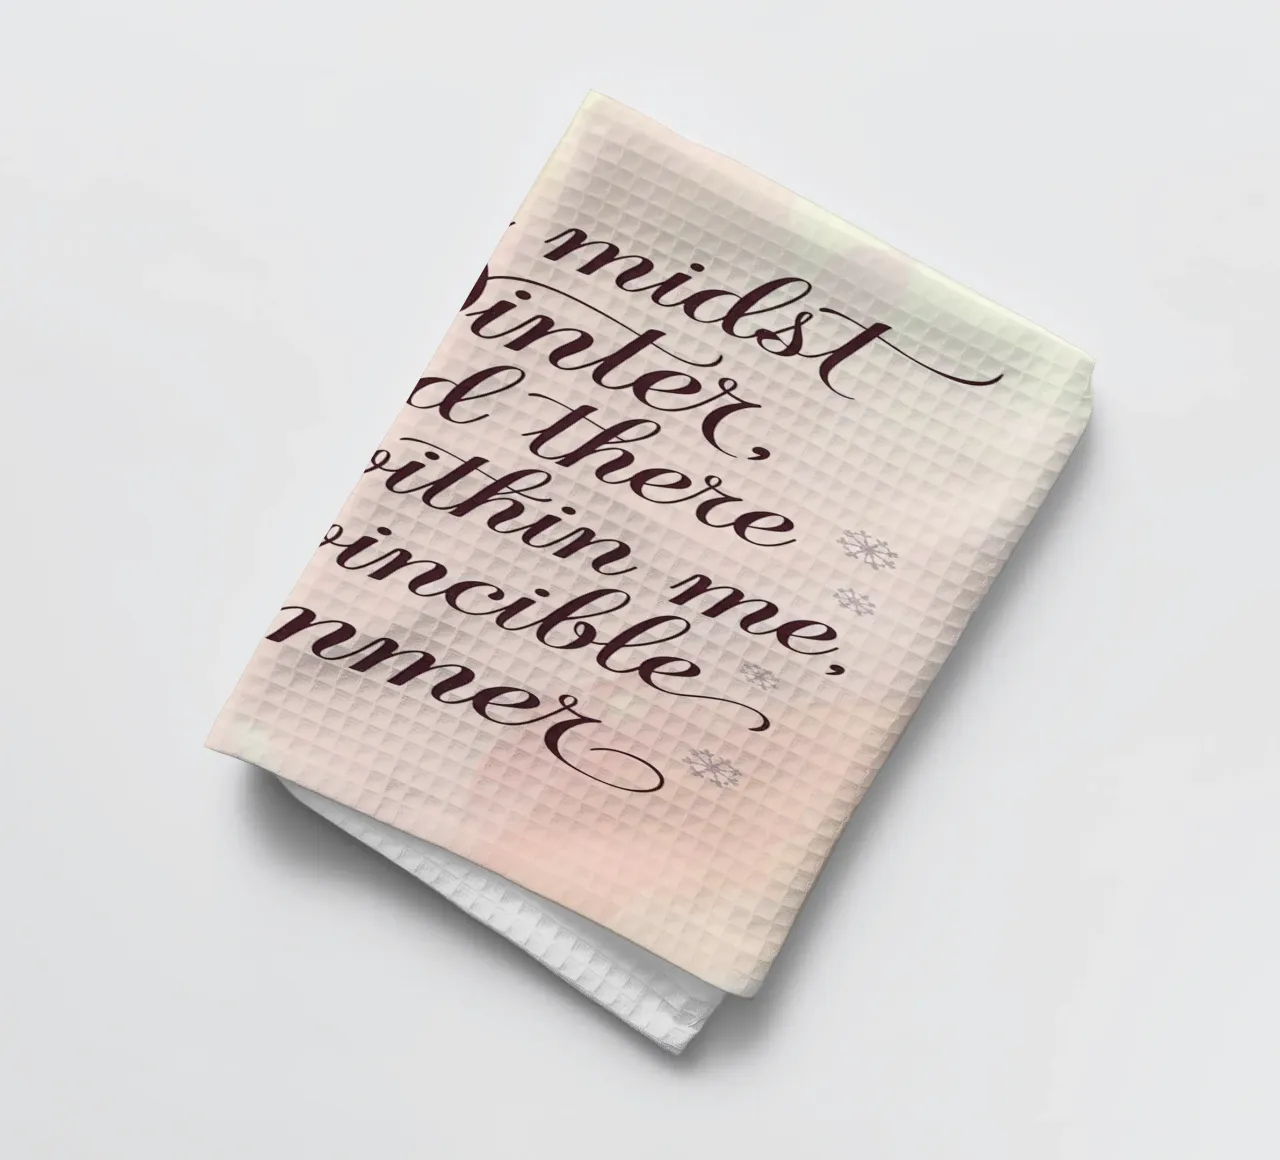 midst
inter,
d there
within me,
vincible
mmer